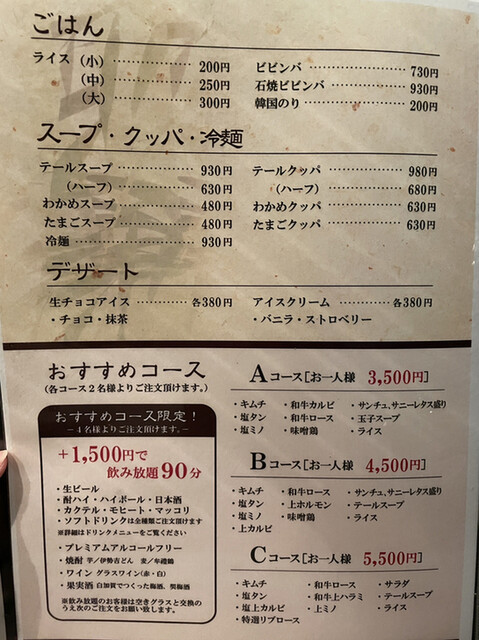 ごはん
ライス（小）………… 200円
（中）………… 250円
（大）………… 300円
ビビンバ………… 730円
石焼ビビンバ………… 930円
韓国のり………… 200円
スープ・クッパ・冷麺
テールスープ………… 930円
（ハーフ）………… 630円
わかめスープ………… 480円
たまごスープ………… 480円
冷麺………… 930円
テールクッパ………… 980円
（ハーフ）………… 680円
わかめクッパ………… 630円
たまごクッパ………… 630円
デザート
生チョコアイス………… 各380円
・チョコ・抹茶
アイスクリーム………… 各380円
・バニラ・ストロベリー
おすすめコース
（各コース2名様よりご注文頂けます。）
おすすめコース限定！
―4名様よりご注文頂けます。―
+1,500円で
飲み放題90分
・生ビール
・酎ハイ・ハイボール・日本酒
・カクテル・モヒート・マッコリ
・ソフトドリンクは全種類ご注文頂けます
※詳細はドリンクメニューをご覧ください
・プレミアムアルコールフリー
・焼酎 芋／伊勢吉どん 麦／牟禮鶴
・ワイン グラスワイン（赤・白）
・果実酒 自加賀でつくった梅酒、
※飲み放題のお客様は空きグラスと交換の
うえ次のご注文をお願い致します。
Aコース［お一人様 3,500円］
・キムチ ・和牛カルビ ・サンチュ、サニーレタス盛り
・塩タン ・和牛ロース ・玉子スープ
・塩ミノ ・味噌鶏 ・ライス
Bコース［お一人様 4,500円］
・キムチ ・和牛ロース ・サンチュ、サニーレタス盛り
・塩タン ・上ホルモン ・テールスープ
・塩ミノ ・味噌鶏 ・ライス
・上カルビ
Cコース［お一人様 5,500円］
・キムチ ・和牛ロース ・サラダ
・塩タン ・和牛上ハラミ ・テールスープ
・塩上カルビ ・上ミノ ・ライス
・特選リブロース